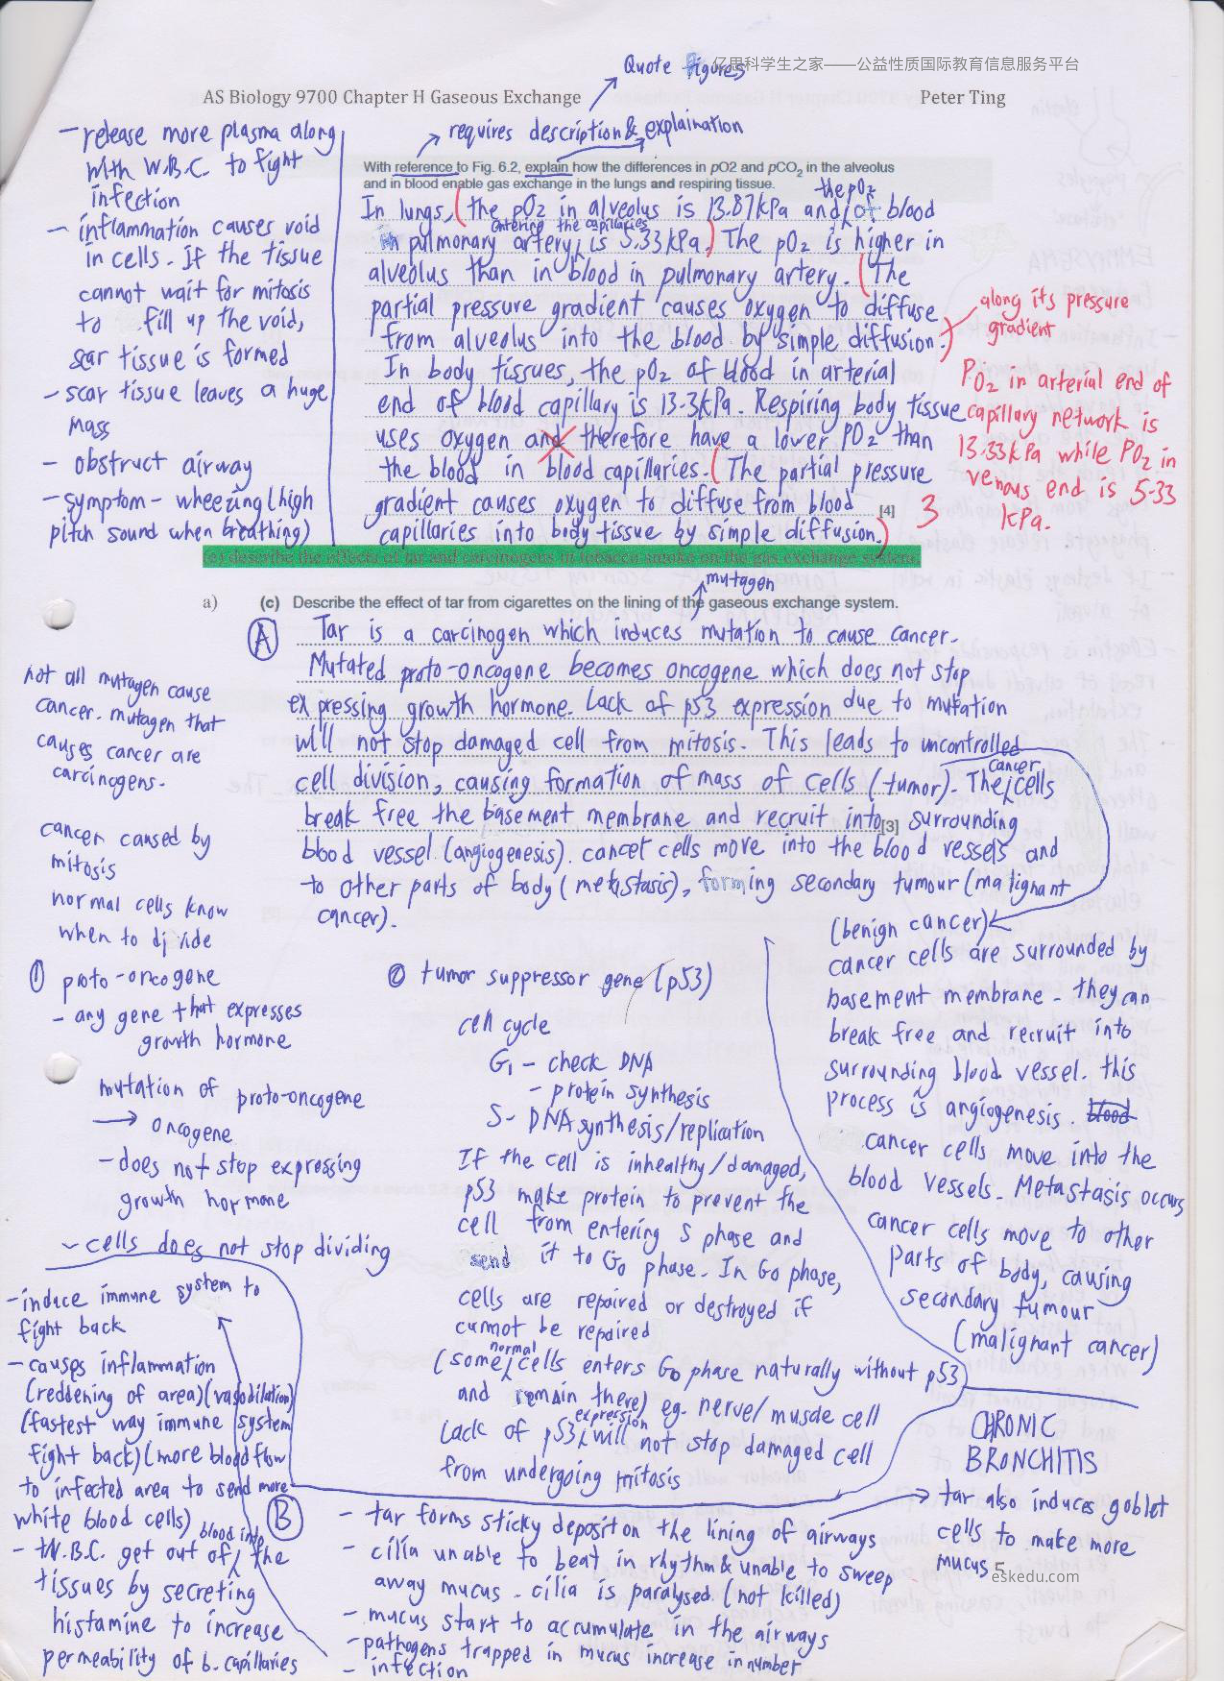 亿思科学生之家——公益性质国际教育信息服务平台
Quote figures
AS Biology 9700 Chapter H Gaseous Exchange
Peter Ting
requires description & explaination
With reference to Fig. 6.2, explain how the differences in pO2 and pCO2 in the alveolus
and in blood enable gas exchange in the lungs and respiring tissue.
the pO2
In lungs, (the pO2 in alveolus is 13.87kPa and of blood
entering the capillaries
in pulmonary artery is 5.33kPa.) The pO2 is higher in
alveolus than in blood in pulmonary artery. (The
partial pressure gradient causes oxygen to diffuse
from alveolus into the blood by simple diffusion.)
In body tissues, the pO2 of blood in arterial
end of blood capillary is 13.3kPa. Respiring body tissue
uses oxygen and therefore have a lower pO2 than
the blood in blood capillaries. (The partial pressure
gradient causes oxygen to diffuse from blood
[4]
capillaries into body tissue by simple diffusion.)
3
along its pressure
gradient
PO2 in arterial end of
capillary network is
13.33kPa while PO2 in
venous end is 5.33
kPa.
- release more plasma along
with W.B.C. to fight
infection
- inflammation causes void
in cells. If the tissue
cannot wait for mitosis
to fill up the void,
scar tissue is formed
- scar tissue leaves a huge
mass
- obstruct airway
- symptom - wheezing (high
pitch sound when breathing)
(e) describe the effects of tar and carcinogens in tobacco smoke on the gas exchange system.
mutagen
a) (c) Describe the effect of tar from cigarettes on the lining of the gaseous exchange system.
A
Tar is a carcinogen which induces mutation to cause cancer.
Mutated proto-oncogene becomes oncogene which does not stop
expressing growth hormone. Lack of p53 expression due to mutation
will not stop damaged cell from mitosis. This leads to uncontrolled
cancer
cell division, causing formation of mass of cells (tumor). The cells
break free the basement membrane and recruit into surrounding
[3]
blood vessel (angiogenesis). cancer cells move into the blood vessels and
to other parts of body (metastasis), forming secondary tumour (malignant
cancer).
not all mutagen cause
cancer. mutagen that
causes cancer are
carcinogens.
cancer caused by
mitosis
normal cells know
when to divide
① proto-oncogene
- any gene that expresses
growth hormone
mutation of proto-oncogene
→ oncogene
- does not stop expressing
growth hormone
- cells does not stop dividing
② tumor suppressor gene (p53)
cell cycle
G1 - check DNA
- protein synthesis
S - DNA synthesis/replication
If the cell is inhealthy/damaged,
p53 make protein to prevent the
cell from entering S phase and
send it to G0 phase. In G0 phase,
cells are repaired or destroyed if
cannot be repaired
normal
(some cells enters G0 phase naturally without p53
and remain there) eg. nerve/muscle cell
expression
Lack of p53 will not stop damaged cell
from undergoing mitosis
(benign cancer)
cancer cells are surrounded by
basement membrane. they can
break free and recruit into
surrounding blood vessel. this
process is angiogenesis. blood
cancer cells move into the
blood vessels. Metastasis occurs
cancer cells move to other
parts of body, causing
secondary tumour
(malignant cancer)
- induce immune system to
fight back
- causes inflammation
(reddening of area) (vasodilation)
(fastest way immune system
fight back) (more blood flow
to infected area to send more
white blood cells)
blood into
- W.B.C. get out of the
tissues by secreting
histamine to increase
permeability of b. capillaries
B
- tar forms sticky deposit on the lining of airways
- cilia unable to beat in rhythm & unable to sweep
away mucus. cilia is paralysed (not killed)
- mucus start to accumulate in the airways
- pathogens trapped in mucus increase in number
- infection
CHRONIC
BRONCHITIS
→ tar also induces goblet
cells to make more
mucus
5
eskedu.com